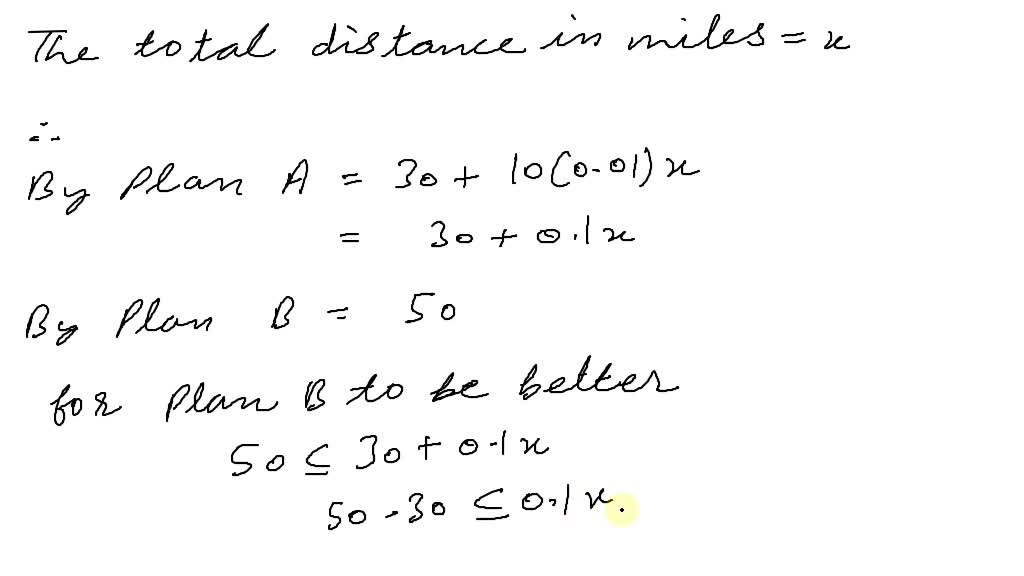 The total distance in miles = x
∴
By Plan A = 30 + 10(0.01)x
= 30 + 0.1x
By Plan B = 50
for Plan B to be better
50 ≤ 30 + 0.1x
50 - 30 ≤ 0.1x.